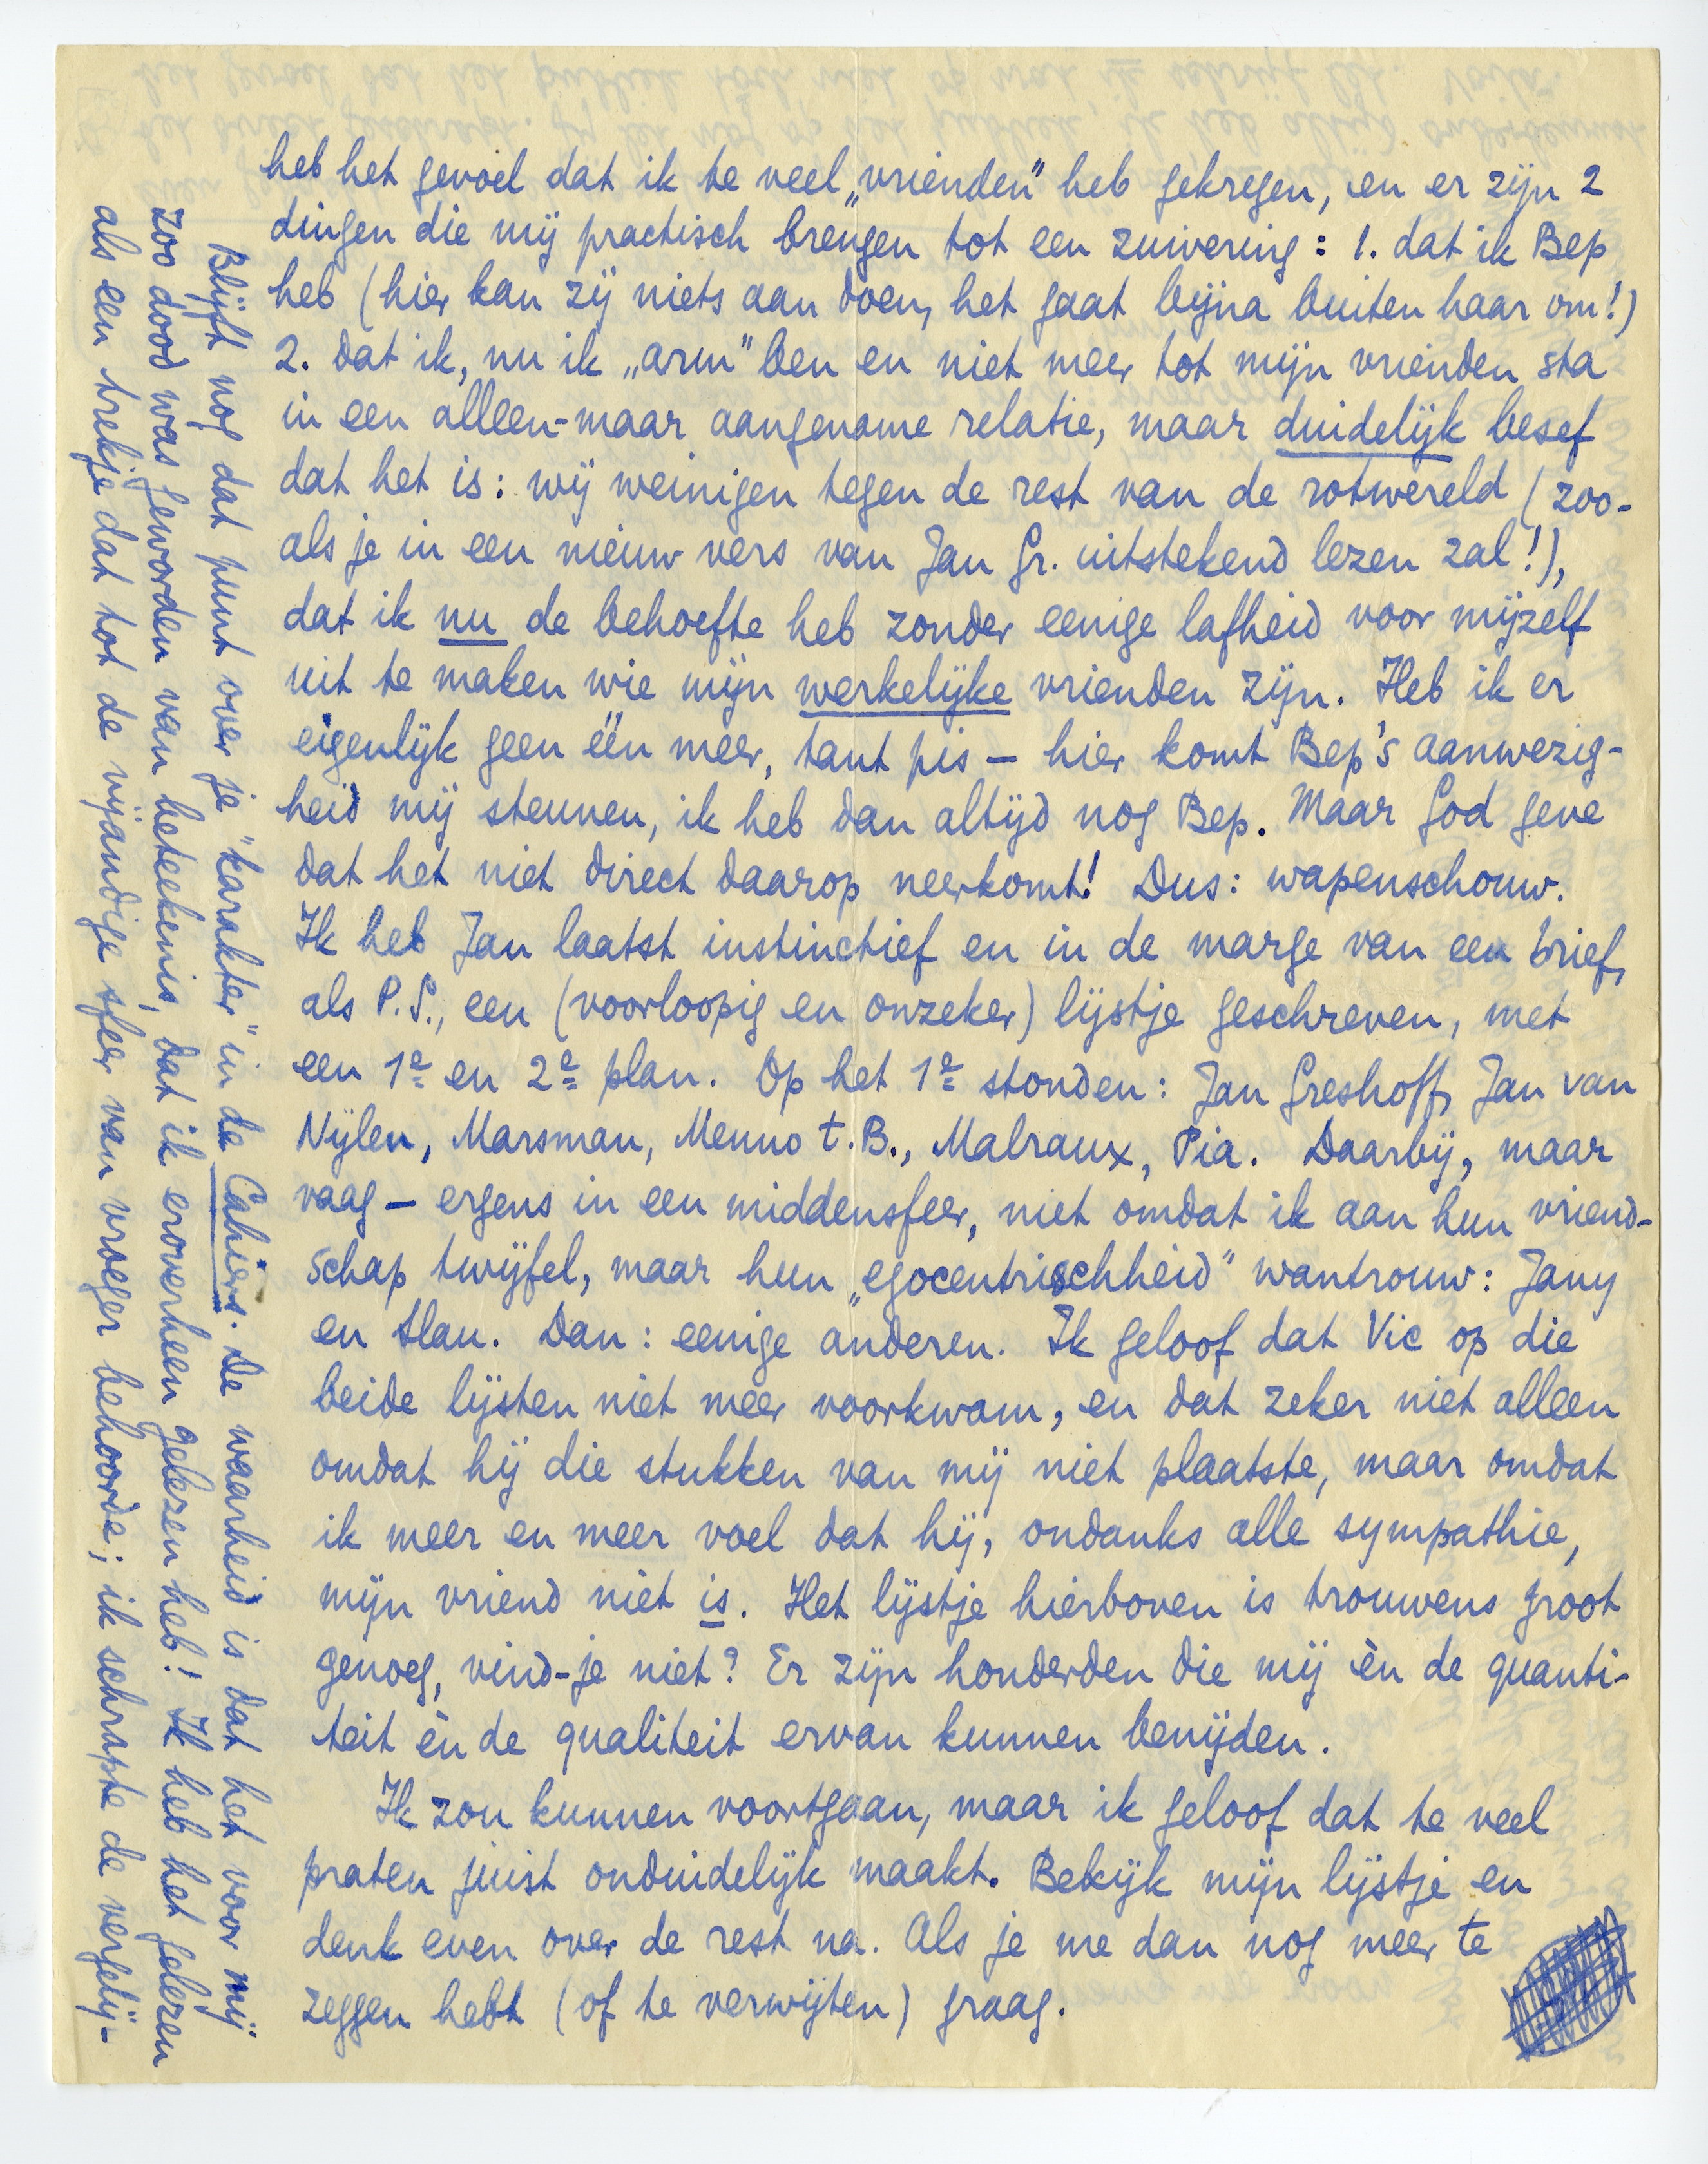 heb het gevoel dat ik te veel „vrienden” heb gekregen, en er zijn 2
dingen die mij practisch brengen tot een zuivering: 1. dat ik Bep
heb (hier kan zij niets aan doen, het gaat bijna buiten haar om!)
2. dat ik, nu ik „arm” ben en niet meer tot mijn vrienden sta
in een alleen-maar aangename relatie, maar duidelijk besef
dat het is: wij weinigen tegen de rest van de rotwereld (zoo-
als je in een nieuw vers van Jan Gr. uitstekend lezen zal!),
dat ik nu de behoefte heb zonder eenige lafheid voor mijzelf
uit te maken wie mijn werkelijke vrienden zijn. Heb ik er
eigenlijk geen één meer, tant pis – hier komt Bep's aanwezig-
heid mij steunen, ik heb dan altijd nog Bep. Maar God geve
dat het niet direct daarop neerkomt! Dus: wapenschouw.
Ik heb Jan laatst instinctief en in de marge van een brief,
als P.S., een (voorloopig en onzeker) lijstje geschreven, met
een 1e en 2e plan. Op het 1e stonden: Jan Greshoff, Jan van
Nijlen, Marsman, Menno t. B., Malraux, Pia. Daarbij, maar
vaag – ergens in een middensfeer, niet omdat ik aan hun vriend-
schap twijfel, maar hun „egocentrischheid” wantrouw: Jany
en Slau. Dan: eenige anderen. Ik geloof dat Vic op die
beide lijsten niet meer voorkwam, en dat zeker niet alleen
omdat hij die stukken van mij niet plaatste, maar omdat
ik meer en meer voel dat hij, ondanks alle sympathie,
mijn vriend niet is. Het lijstje hierboven is trouwens groot
genoeg, vind-je niet? Er zijn honderden die mij èn de quanti-
teit èn de qualiteit ervan kunnen benijden.
Ik zou kunnen voortgaan, maar ik geloof dat te veel
praten juist onduidelijk maakt. Bekijk mijn lijstje en
denk even over de rest na. Als je me dan nog meer te
zeggen hebt (of te verwijten) graag.
Blijft nog dat punt over je "karakter" in de Cahiers. De waarheid is dat het voor mij
zoo dood was geworden van beteekenis, dat ik eroverheen gelezen heb! Ik heb het gelezen
als een trekje dat tot de vijandige sfeer van vroeger behoorde; ik schrapte de vergelij-